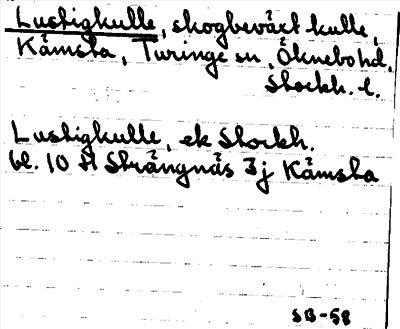 Lustigkulle, skogbeväxt kulle,
Kämsta, Turinge sn, Öknebo hd,
Stockh. l.
Lustigkulle, ek Stockh.
bl. 10 H Strängnäs 3j Kämsta
SB-58